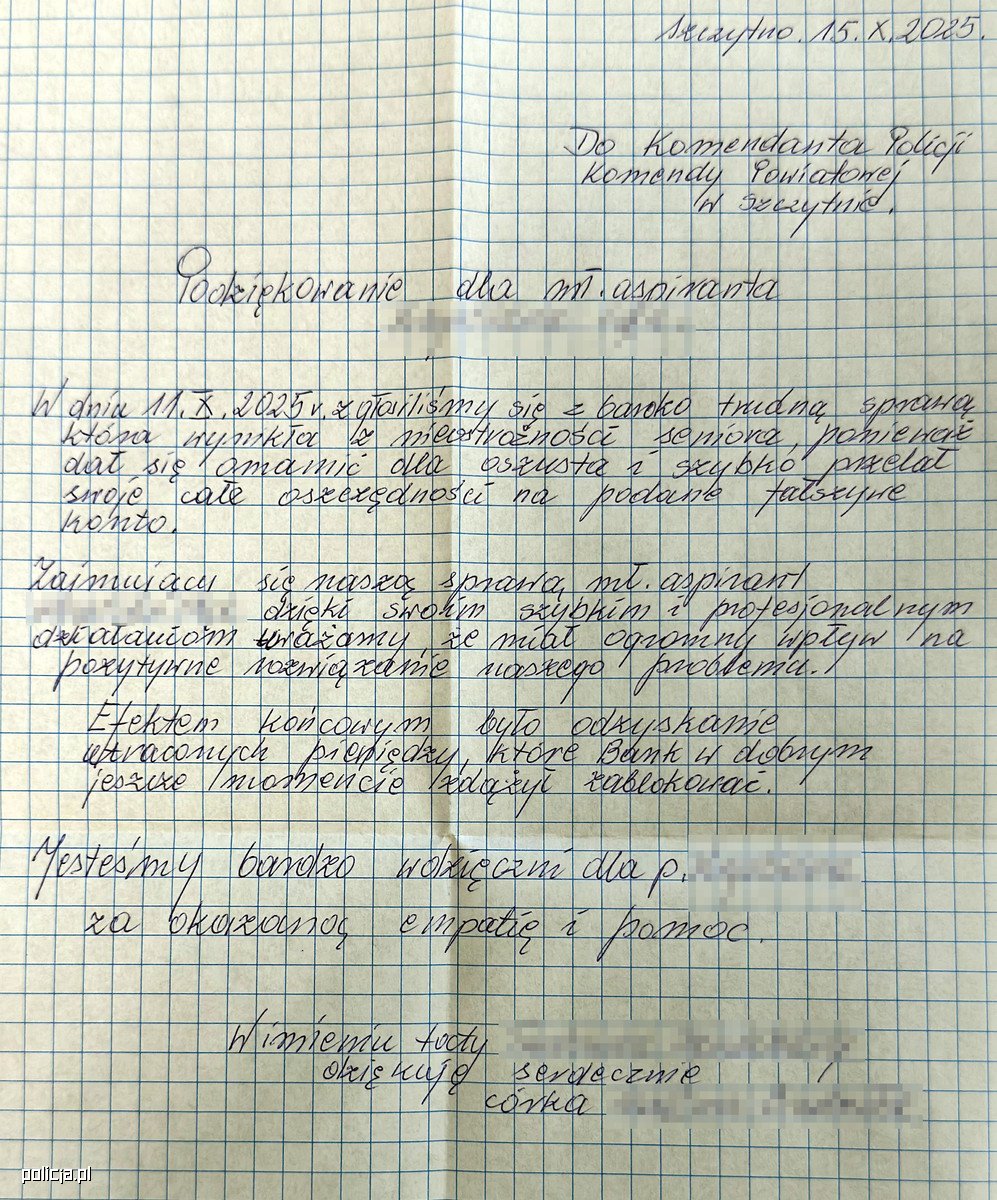 Szczytno. 15.X.2025.
Do Komendanta Policji
Komendy Powiatowej
w Szczytnie.
Podziękowanie dla mł. aspiranta
W dniu 11.X.2025 r. zgłosiliśmy się z bardzo trudną sprawą
która wynikła z nieostrożności seniora, ponieważ
dał się omamić dla oszusta i szybko przelał
swoje całe oszczędności na podane fałszywe
konto.
Zajmujący się naszą sprawą mł. aspirant
dzięki swoim szybkim i profesjonalnym
działaniom uważamy, że miał ogromny wpływ na
pozytywne rozwiązanie naszego problemu.
Efektem końcowym było odzyskanie
utraconych pieniędzy, które Bank w dobrym
jeszcze momencie zdążył zablokować.
Jesteśmy bardzo wdzięczni dla p.
za okazaną empatię i pomoc.
W imieniu taty
dziękuję serdecznie
córka
policja.pl